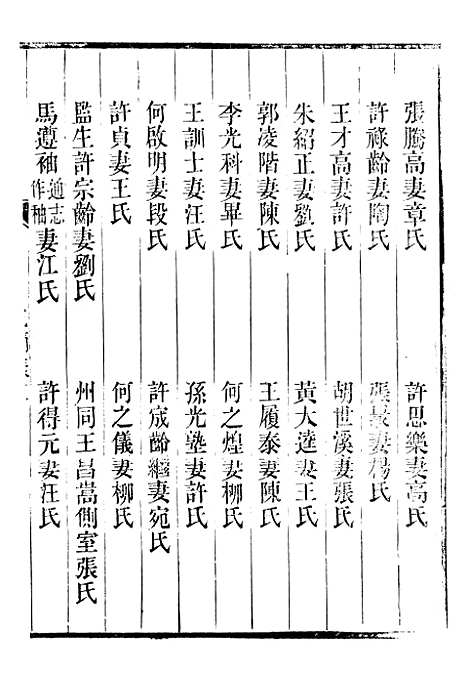 張騰高妻章氏
許思樂妻高氏
許祿齡妻陶氏
張最妻楊氏
王才高妻許氏
胡世溪妻張氏
朱紹正妻劉氏
黃大逵妻王氏
郭凌階妻陳氏
王履泰妻陳氏
李光科妻畢氏
何之煌妻柳氏
王訓士妻汪氏
孫光塾妻許氏
何啟明妻段氏
許成齡繼妻宛氏
許貞妻王氏
何之儀妻柳氏
監生許宗齡妻劉氏
州同王昌嵩側室張氏
馬遵袖通志作秞妻江氏
許得元妻汪氏